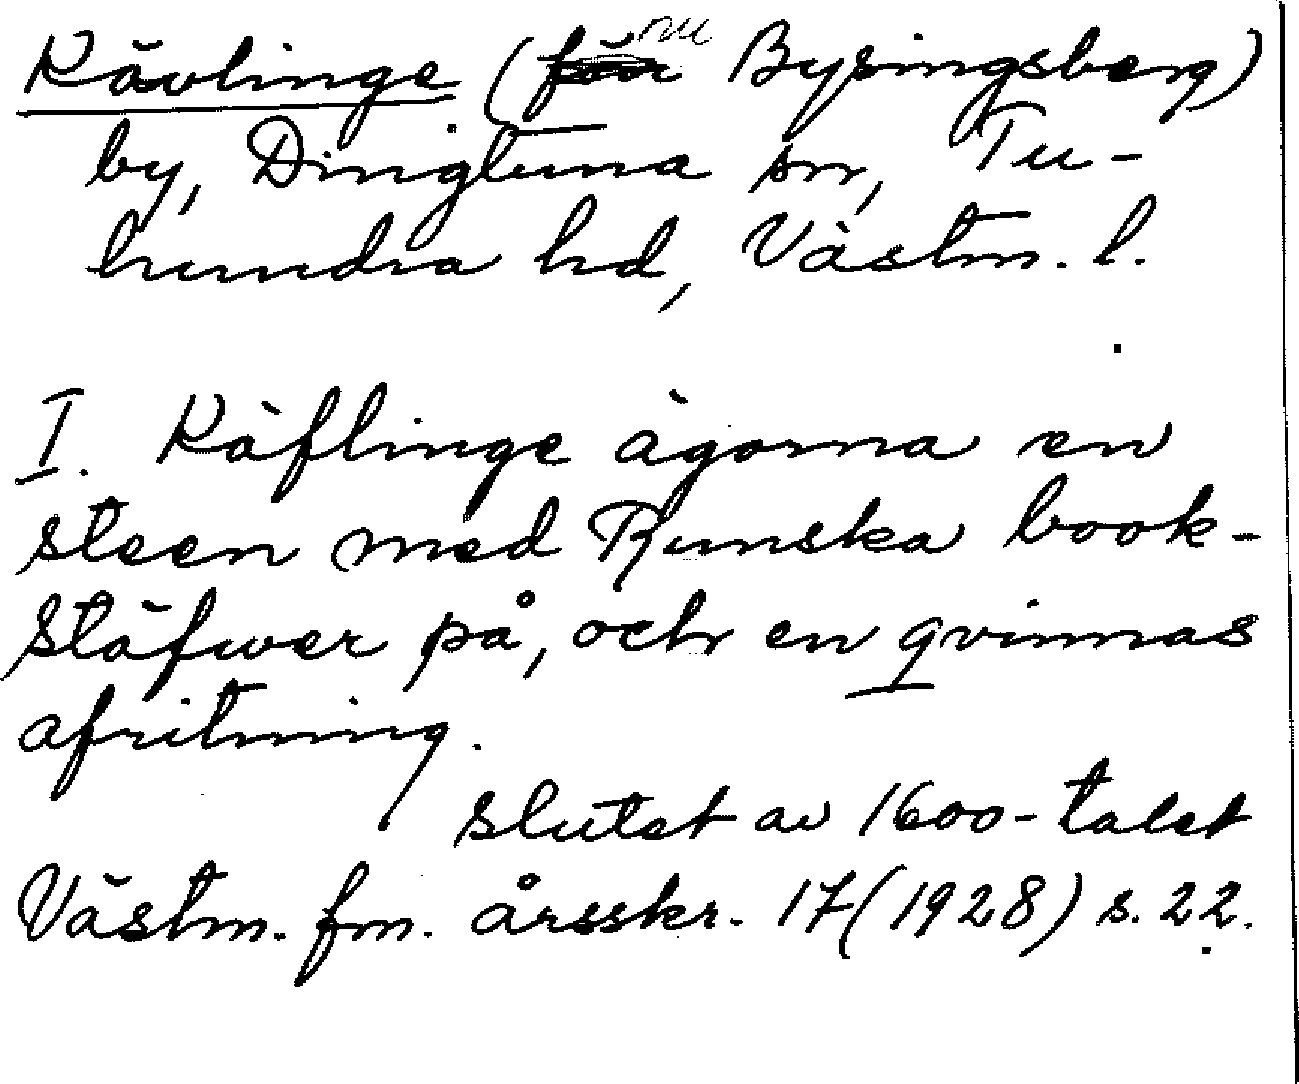 Kävlinge (nu Byringsberg)
by, Dingtuna sn, Tu-
hundra hd, Västm. l.
I. Käflinge ägorna en
steen med Runska book-
stäfwer på, och en qvinnas
afritning.
slutet av 1600-talet
Västm. fm. årsskr. 17 (1928) s. 22.